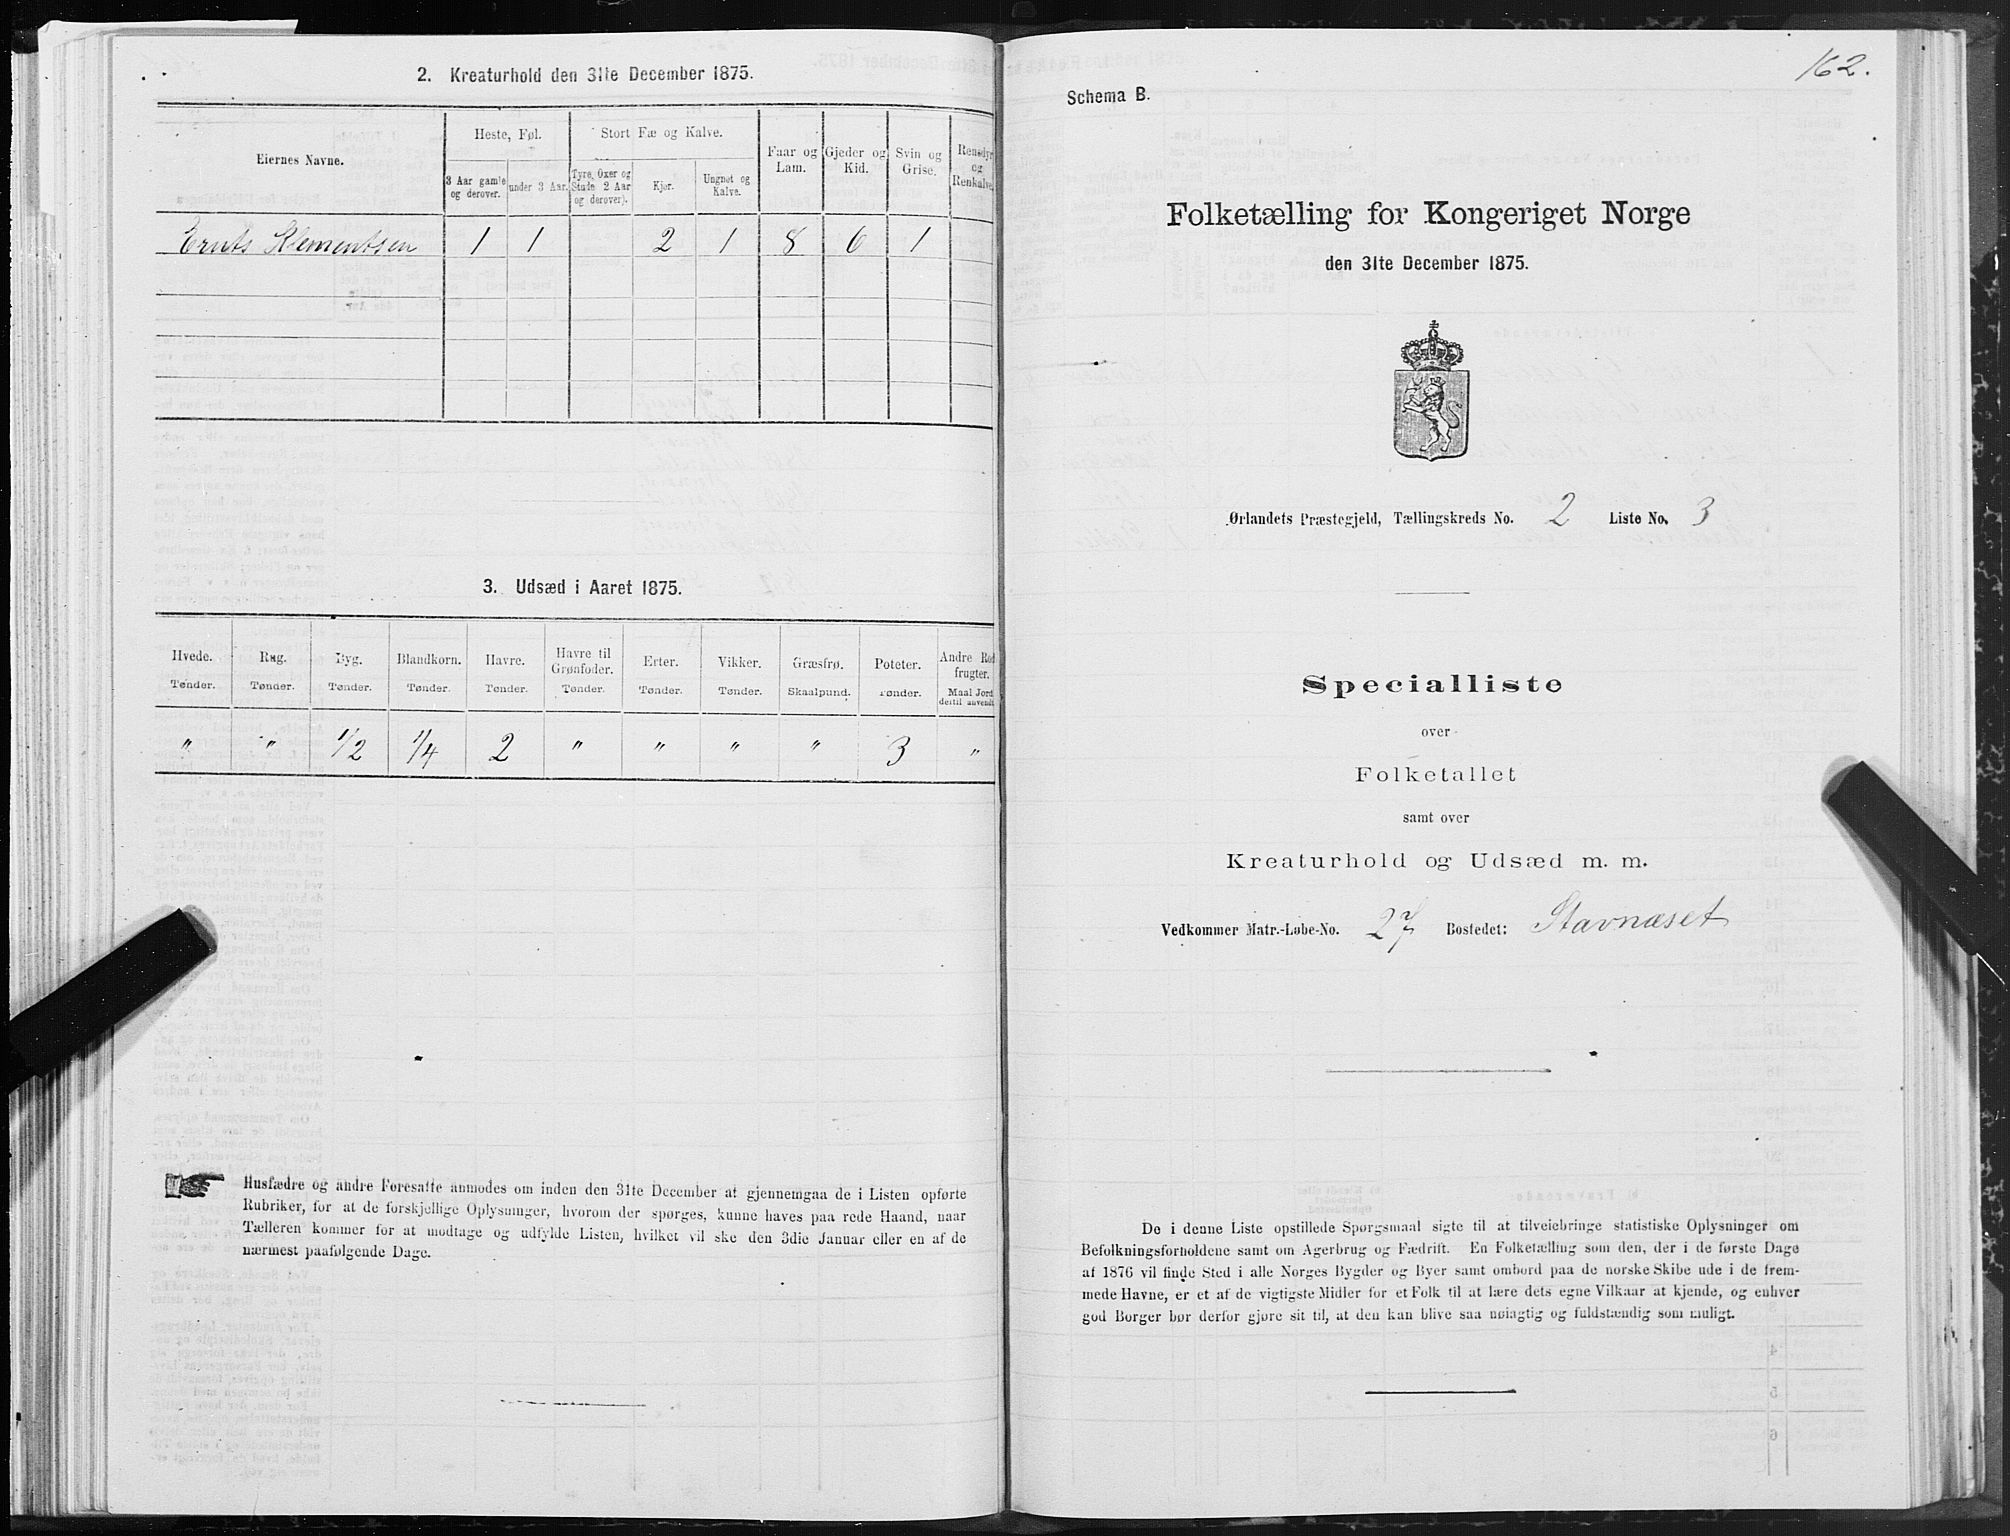 2. Kreaturhold den 31te December 1875.
Eiernes Navne.
Heste, Føl.
Stort Fæ og Kalve.
Faar og Lam.
Gjeder og Kid.
Svin og Grise.
Rensdyr og Renkalve.
3 Aar gamle og derover.
under 3 Aar.
Tyre, Oxer og Stude (2 Aar og derover).
Kjør.
Ungnøt og Kalve.
Ernts Klementsen 1 1 2 1 8 6 1
3. Udsæd i Aaret 1875.
Hvede. Rug. Byg. Blandkorn. Havre. Havre til Grønfoder. Erter. Vikker. Græsfrø. Poteter. Andre Rodfrugter.
Tønder. Tønder. Tønder. Tønder. Tønder. Tønder. Tønder. Tønder. Skaalpund. Tønder. Maal Jord dertil anvendt
" " 1/2 1/4 2 " " " " 3 "
Husfædre og andre Foresatte anmodes om inden den 31te December at gjennemgaa de i Listen opførte
Rubriker, for at de forskjellige Oplysninger, hvorom der spørges, kunne haves paa rede Haand, naar
Tælleren kommer for at modtage og udfylde Listen, hvilket vil ske den 3die Januar eller en af de
nærmest paafølgende Dage.
162.
Schema B.
Folketælling for Kongeriget Norge
den 31te December 1875.
Ørlandets Præstegjeld, Tællingskreds No. 2 Liste No. 3
Specialliste
over
Folketallet
samt over
Kreaturhold og Udsæd m. m.
Vedkommer Matr.-Løbe-No. 27 Bostedet: Stavnæset
De i denne Liste opstillede Spørgsmaal sigte til at tilveiebringe statistiske Oplysninger om
Befolkningsforholdene samt om Agerbrug og Fædrift. En Folketælling som den, der i de første Dage
af 1876 vil finde Sted i alle Norges Bygder og Byer samt ombord paa de norske Skibe ude i de frem-
mede Havne, er et af de vigtigste Midler for et Folk til at lære dets egne Vilkaar at kjende, og enhver
god Borger bør derfor gjøre sit til, at den kan blive saa nøiagtig og fuldstændig som muligt.